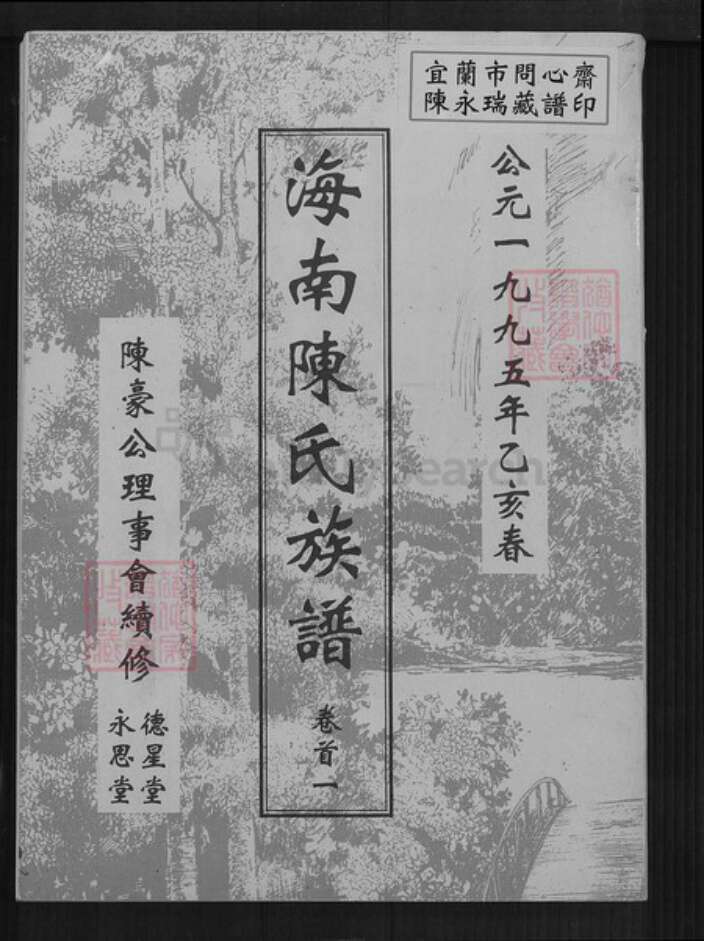 宜蘭市問心齋
陳永瑞藏譜印
公元一九九五年乙亥春
海南陳氏族譜
卷首一
陳豪公理事會續修
德星堂
永思堂